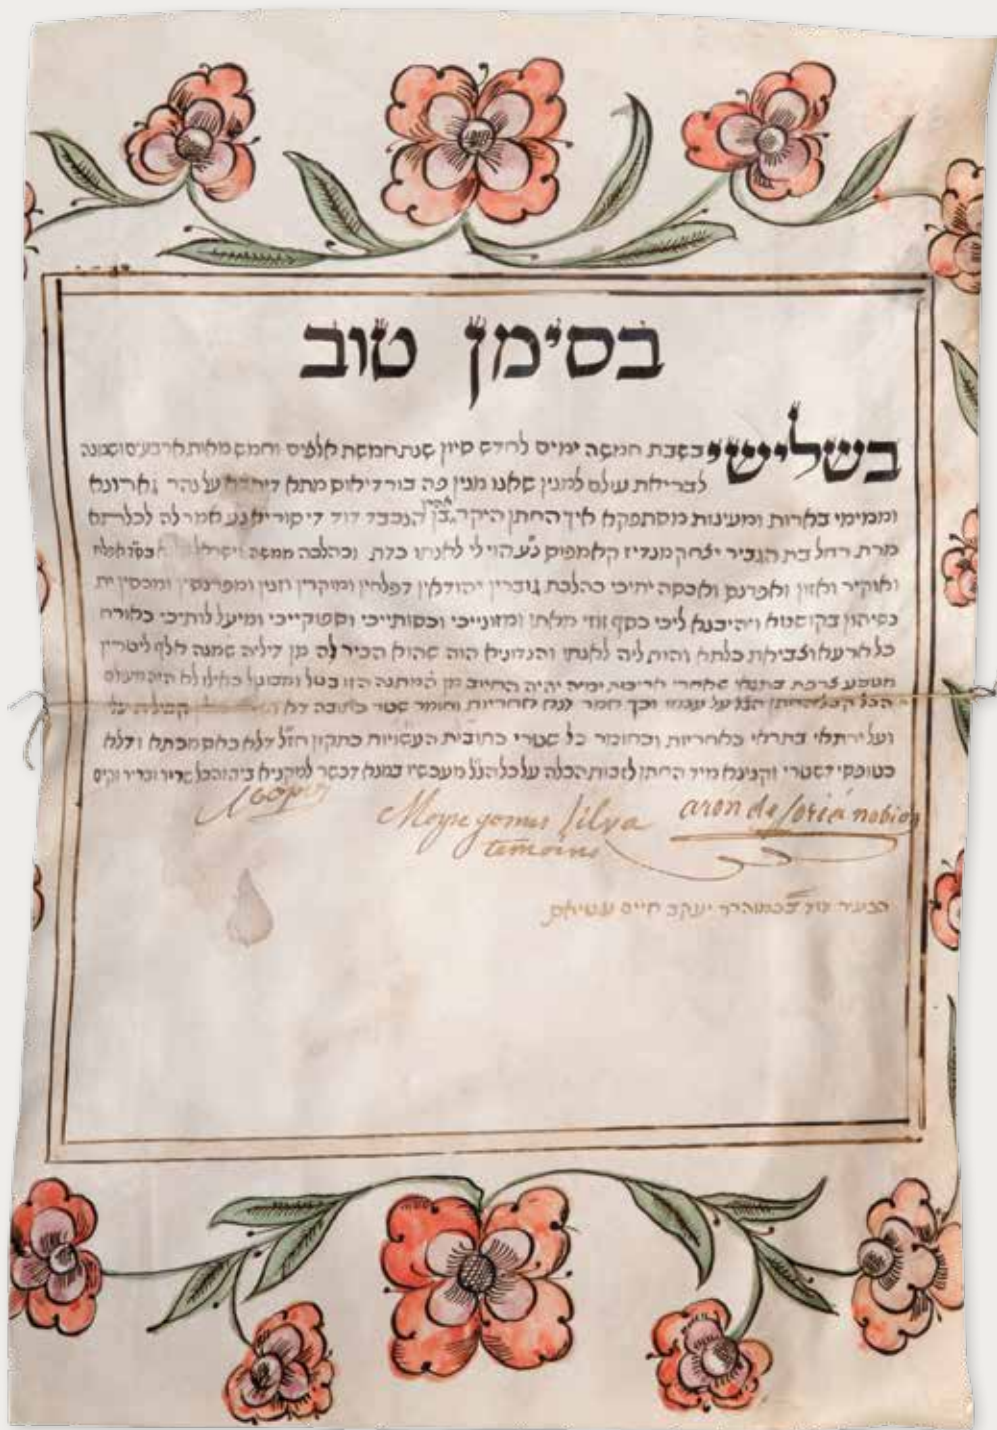 בסימן טוב
בשלישי בשבת חמשה ימים לחדש סיון שנת חמשת אלפים וחמש מאות וארבעים ושמונה
לבריאת עולם למנין שאנו מנין פה בורדיאוס מתא דיתבא על נהר גארונא
וממימי בארות ומעינות מסתפקא איך החתן היקר אהרן בן הנכבד דוד די סוריא נע אמר לה לכלתא
מרת רחל בת הגביר יצחק מנדיז קאמפוס נע הוי לי לאנתו כדת משה וישראל ואנא בסד אפלח
ואוקיר ואזון ואפרנס ואכסה יתיכי כהלכת גוברין יהודאין דפלחין ומוקרין וזנין ומפרנסין ומכסין ית
נשיהון בקושטא ויהיבנא ליכי כסף זוזי מאתן ומזונייכי וכסותייכי וספוקייכי ומיעל לותיכי כאורח
כל ארעא וצביאת כלתא והות ליה לאנתו והנדוניא הוה שהוא הכיר לה מן דיליה שמנה אלף ליטרין
מטבע צרפת בתנאי שאחרי אריכות ימיה יהיה החיוב מן המתנה הזו בטל ומבוטל כאילו לא היה מעולם
הכל קבל החתן הנל על עצמו וכך אמר לנא אחריות וחומר שטר כתובה דא קבילת עלי
ועל ירתאי בתראי כאחריות וכחומר כל שטרי כתובות העשויות כתקון חזל דלא כאסמכתא ודלא
כטופסי דשטרי וקנינא מיד החתן לזכות הכלה על כל הנל מעכשיו במנא דכשר למקניא ביה והכל שריר ובריר וקים
aron de soria nobio
Moyse gomes silva
temoins
הצעיר דוד בכמוהרר יעקב חיים עטיאס